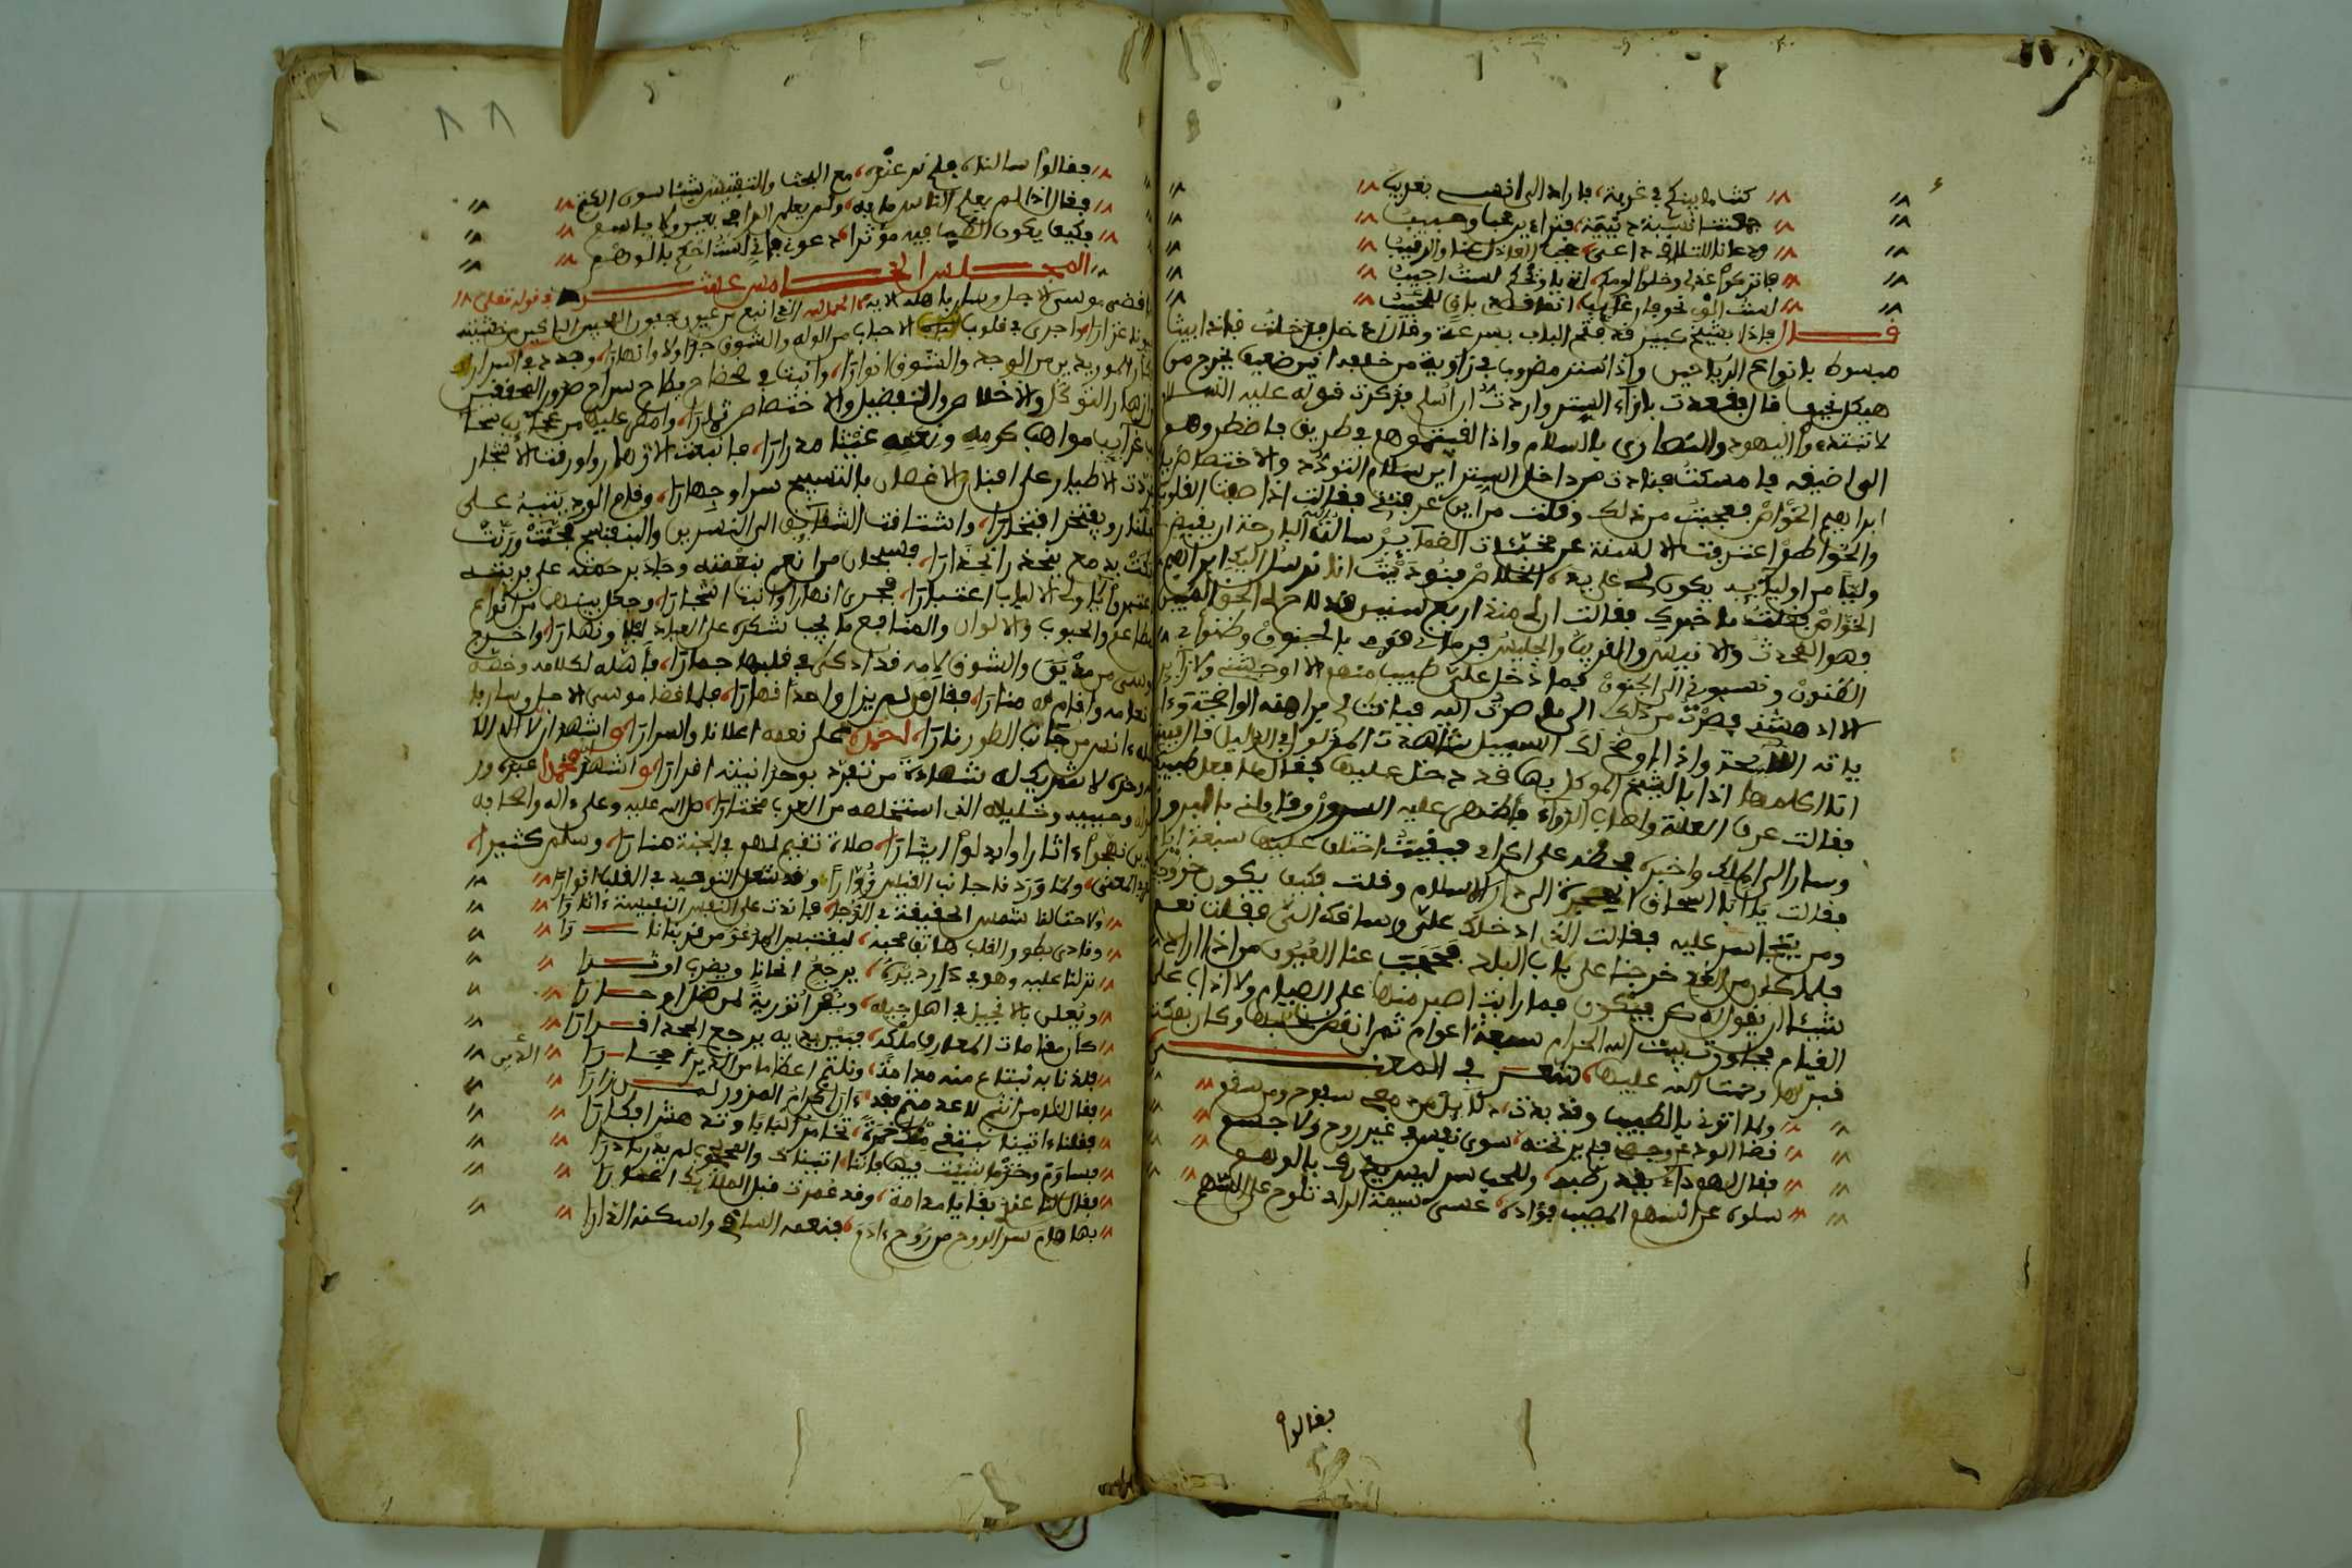 كنتما بينكم في غربة فاراد الى انهـ بغريب
جمعتنا نسبة دينية فتراءى محبا وحبيب
ودعانا للتلاقي داعي حجب العاذل عنا والرقيب
فاتركوا عذلي وخلوا لومكم اني يا ويحكم لست اجيب
لست الوي نحو جار غايب انما قصدي باقي لا يغيب
قال فاذا بشيخ كبير قد فتح الباب بسرعة وقال ادخل فدخلت فاذا بيتا
مبسوط بانواع الرياحين واذا ستر مضروب في زاوية من خلفه انين ضعيف يخرج من
هيكل نحيف قال فقعدت بازاء الستر واردت ان اسلم فذكرت قوله عليه السلام
لا تبتدءوا اليهود والنصارى بالسلام واذا لقيتموهم في طريق فاضطروهم
الى اضيقه فامسكت فنادت من داخل الستر اين سلام التوحيد والاخلاص يا
ابراهيم الخواص فعجبت من ذلك وقلت من اين عرفتني فقالت اذا صفت القلوب
والخواطر اعترفت الالسنة عن مخبئات الضمآير سالته البارحة ان يقيض
وليا من اوليآيه يكون لي على يده الخلاص فنوديت انا نرسل اليك ابراهيم
الخواص فقلت ما خبرك فقالت ان لي منذ اربع سنين قد لاح لي الحق المبين
وهو المحدث والانيس والقريب والجليس فرماني قومي بالجنون وظنوا بي
الظنون ونسبوني الى الجنون فما دخل علي طبيب منهم الا اوحشني ولا زآير
الا ادهشني فقلت من ذلك الى ما صرت اليه فقالت لي براهينه الواضحة وءا
ياته اللايحة واذا وضح لك السبيل شاهدت المدلول في الدليل قال فبينما
انا اكلمها اذا بالشيخ الموكل بها قد دخل عليها فقال ما فعل طبيبك
فقالت عرف العلة واصاب الدواء فاظهر عليه السرور وقابلني بالبرور
وسار الى الملك واخبره فحضه على اكرامي فبقيت اختلف عليها سبعة ايام
فقالت يا ابا اسحاق متى الهجرة الى دار الاسلام وقلت كيف يكون خروجك
ومن يتجاسر عليه فقالت الذي ادخلك علي وساقك الي فقلت نعم
فلما كان من الغد خرجنا على باب البلد فحجبت عنا العيون من اذا اراد
شيئا ان يقول له كن فيكون فما رايت اصبر منها على الصيام ولا اداب على
القيام فجاورت بيت الله الحرام سبعة اعوام ثم انقضى نحبها وكان بمكة
قبرها رحمت الله عليها شعر في المعنى
ولما اتوني بالطبيب وقد بدت دلايل من دمعي سفوح ومن سقم
نضا الودع وجها فلم ير تحته سوى نفس في غير روح ولا جسم
فقال لهم داء بعيد طبه وللحب سر ليس يدرى بالوهم
سلوه عن السهم المصيب فؤاده عسى سيفة الراد تلوح على السهم
فقالوا
فقالوا سالناه فلم ندر عنه مع البحث والتفتيش شيئا سوى الكتم
فقال اذا لم يعلم الناس ما به ولم يعلم الراءي بعين ولا باسم
فكيف يكون الطب فيه مؤثرا دعوني فاني لست احكم بالوهم
المجلس الخامس عشر في قوله تعلى
فلما قضى موسى الاجل وسار باهله الاية الحمد لله الذي انبع من عيون جفون المحبين الباكين من خشيته
عيونا غزارا واجرى في قلوب الاحباب من الوله والشوق جداولا وانهارا وجدد في اسرار
افكار المريدين من الوجد والشوق انوارا وانبت في بطاح سراح صدور المحققين
ازهار التوكل والاخلاص والتفضيل والاختصاص ثمارا وامطر عليها من سحآيب سحآ
يا غرآيب مواهب كرمه ونعمه غيثا مدرارا فانبعثت الازهار واورقت الاشجار
وغردت الاطيار على افنان الاغصان بالتسبيح سرا وجهارا وقام الورد يتيه على
الجلنار ويفتخر افتخارا واشتاقت الشقآيق الى النسرين والبنفسج فحنت ورنت
وبكت بدمع ينحدر انحدارا فسبحان من انعم بنعمته وجاد برحمته على بريته
فاعتبروا يا اولي الالباب اعتبارا فجرى انهارا وانبت اشجارا وجعل بينهما من انواع
المطاعم والحبوب والالوان والمنافع ما يجب شكره على العباد ليلا ونهارا واخرج
موسى من مدين والشوق لامه قد اذكى في قلبه جمارا فاهله لكلامه وخصه
بانعامه واقام له منارا فقال من لم يزل واحدا قهارا فلما قضا موسى الاجل وسار با
هله ءانس من جانب الطور نارا احمده على نعمه اعلانا واسرارا واشهد ان لا اله الا
الله وحده لا شريك له شهادة من تفرد بوحدانيته اقرارا واشهد ان محمدا عبده ور
سوله وحبيبه وخليله الذي استخلصه من العرب مختارا صلى الله عليه وعلى ءاله واصحابه
الذين نهجوا ءاثارا وابدلوا ايثارا صلاة تقيم لهم في الجنة منارا وسلم كثيرا
في المعنى ولما وردنا جانب القدس زوارا وقد شعل التوحيد في القلب انوارا
ولاحت لنا شمس الحقيقة في الدجا فبانت على النفس النفيسة ءاثارا
ونادى بطور القلب هاتف محبه ليقتبس المدعو من قربنا نارا
نزلنا عليه وهو في دار ديره يرجع الحانا ويضرب اوتارا
ويعلن بالانجيل في اهل جيله ويقرا توراة لمن ضل او حارا
كان مقامات المعارف ملكه فبين يديه يرجع المجد اقرارا
فلذنا به نبتاع منه مدامة ونلثم اعظاما من الدير احجارا
فقال لنا من انتم لا عدمتم فقد ءان اكرام المزور لمن زارا
فقلناه اتيناك نبتغي منك خمرة تخامر البابا وتدهش افكارا
فساوم وخذ ما شيت فيها فاننا اتيناك والمحبوب لم يدر ما دارا
فقال لنا عندي بقايا مدامة وقد غمرت قبل الملآيك اعمارا
بها هام سر الروح من روح ءادم فنعمه الساقي واسكنه الدارا